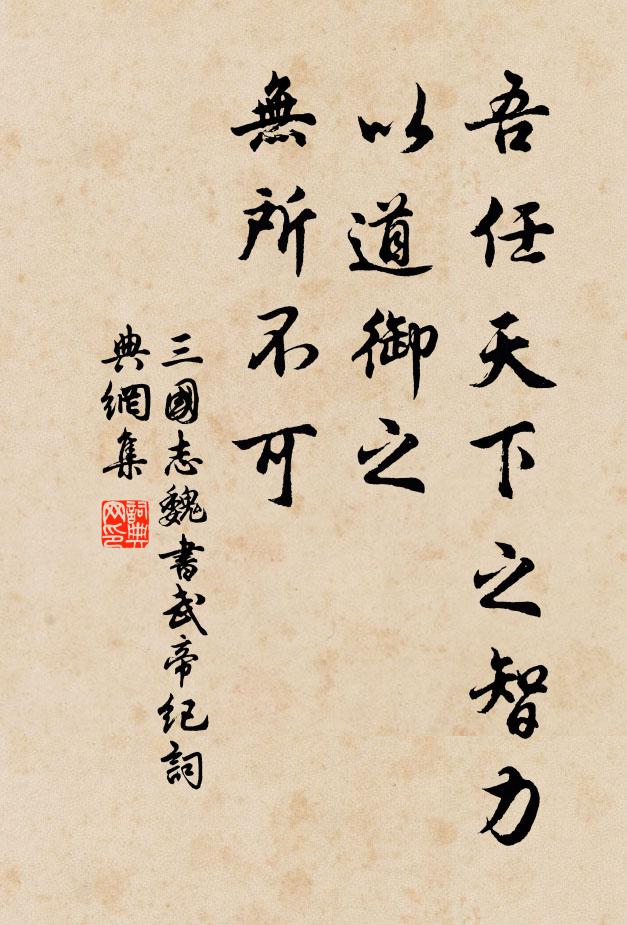 吾任天下之智力
以道御之
無所不可
三國志魏書武帝紀詞
典網集
詞典
网印